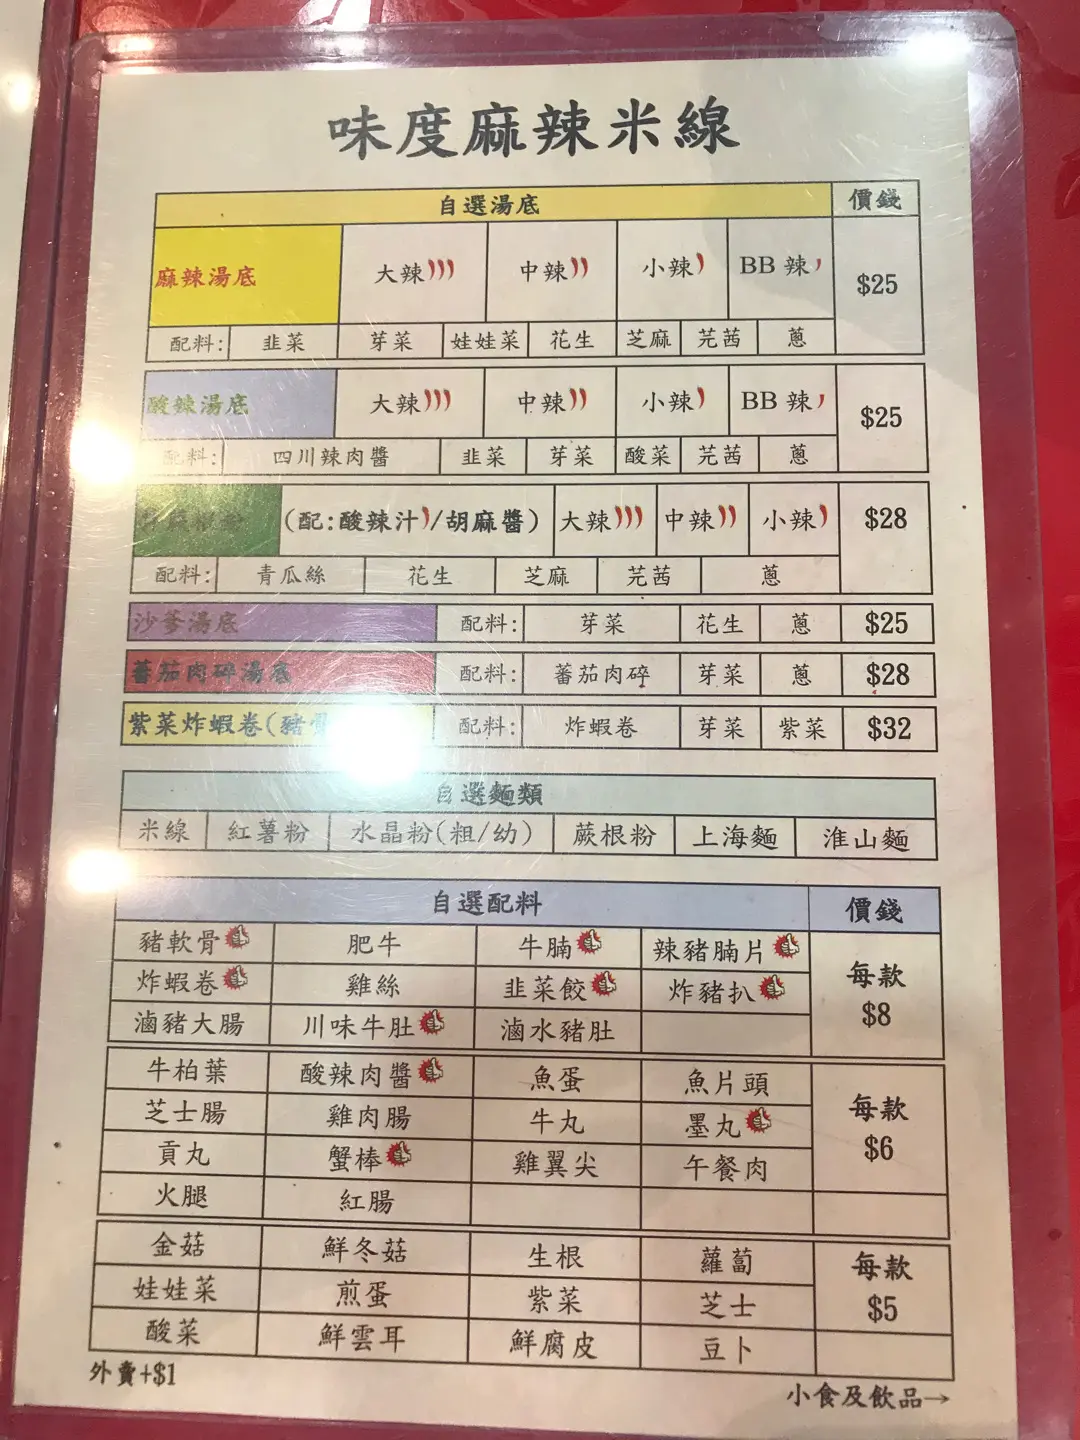 味度麻辣米線
自選湯底 價錢
麻辣湯底 大辣 中辣 小辣 BB 辣 $25
配料: 韭菜 芽菜 娃娃菜 花生 芝麻 芫茜 蔥
酸辣湯底 大辣 中辣 小辣 BB 辣 $25
配料: 四川辣肉醬 韭菜 芽菜 酸菜 芫茜 蔥
(配:酸辣汁/胡麻醬) 大辣 中辣 小辣 $28
配料: 青瓜絲 花生 芝麻 芫茜 蔥
沙爹湯底 配料: 芽菜 花生 蔥 $25
蕃茄肉碎湯底 配料: 蕃茄肉碎 芽菜 蔥 $28
紫菜炸蝦卷(豬 配料: 炸蝦卷 芽菜 紫菜 $32
自選麵類
米線 紅薯粉 水晶粉(粗/幼) 蕨根粉 上海麵 淮山麵
自選配料 價錢
豬軟骨 肥牛 牛腩 辣豬腩片 每款 $8
炸蝦卷 雞絲 韭菜餃 炸豬扒
滷豬大腸 川味牛肚 滷水豬肚
牛柏葉 酸辣肉醬 魚蛋 魚片頭 每款 $6
芝士腸 雞肉腸 牛丸 墨丸
貢丸 蟹棒 雞翼尖 午餐肉
火腿 紅腸
金菇 鮮冬菇 生根 蘿蔔 每款 $5
娃娃菜 煎蛋 紫菜 芝士
酸菜 鮮雲耳 鮮腐皮 豆卜
外賣+$1
小食及飲品→